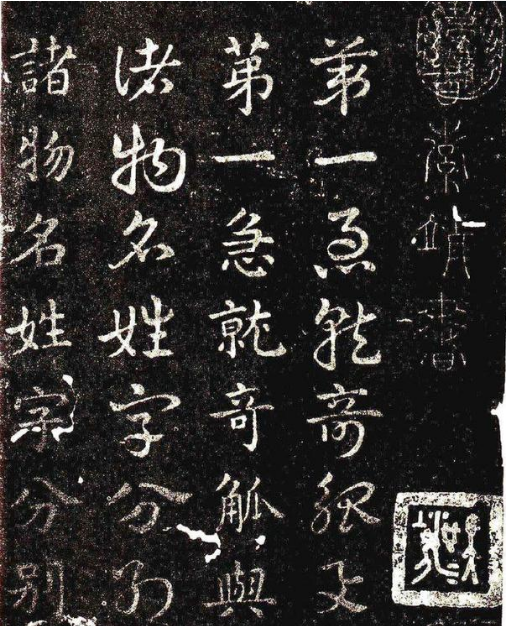 晉索靖書
第一急就奇觚與
第一急就奇觚與
諸物名姓字分別
諸物名姓字分別